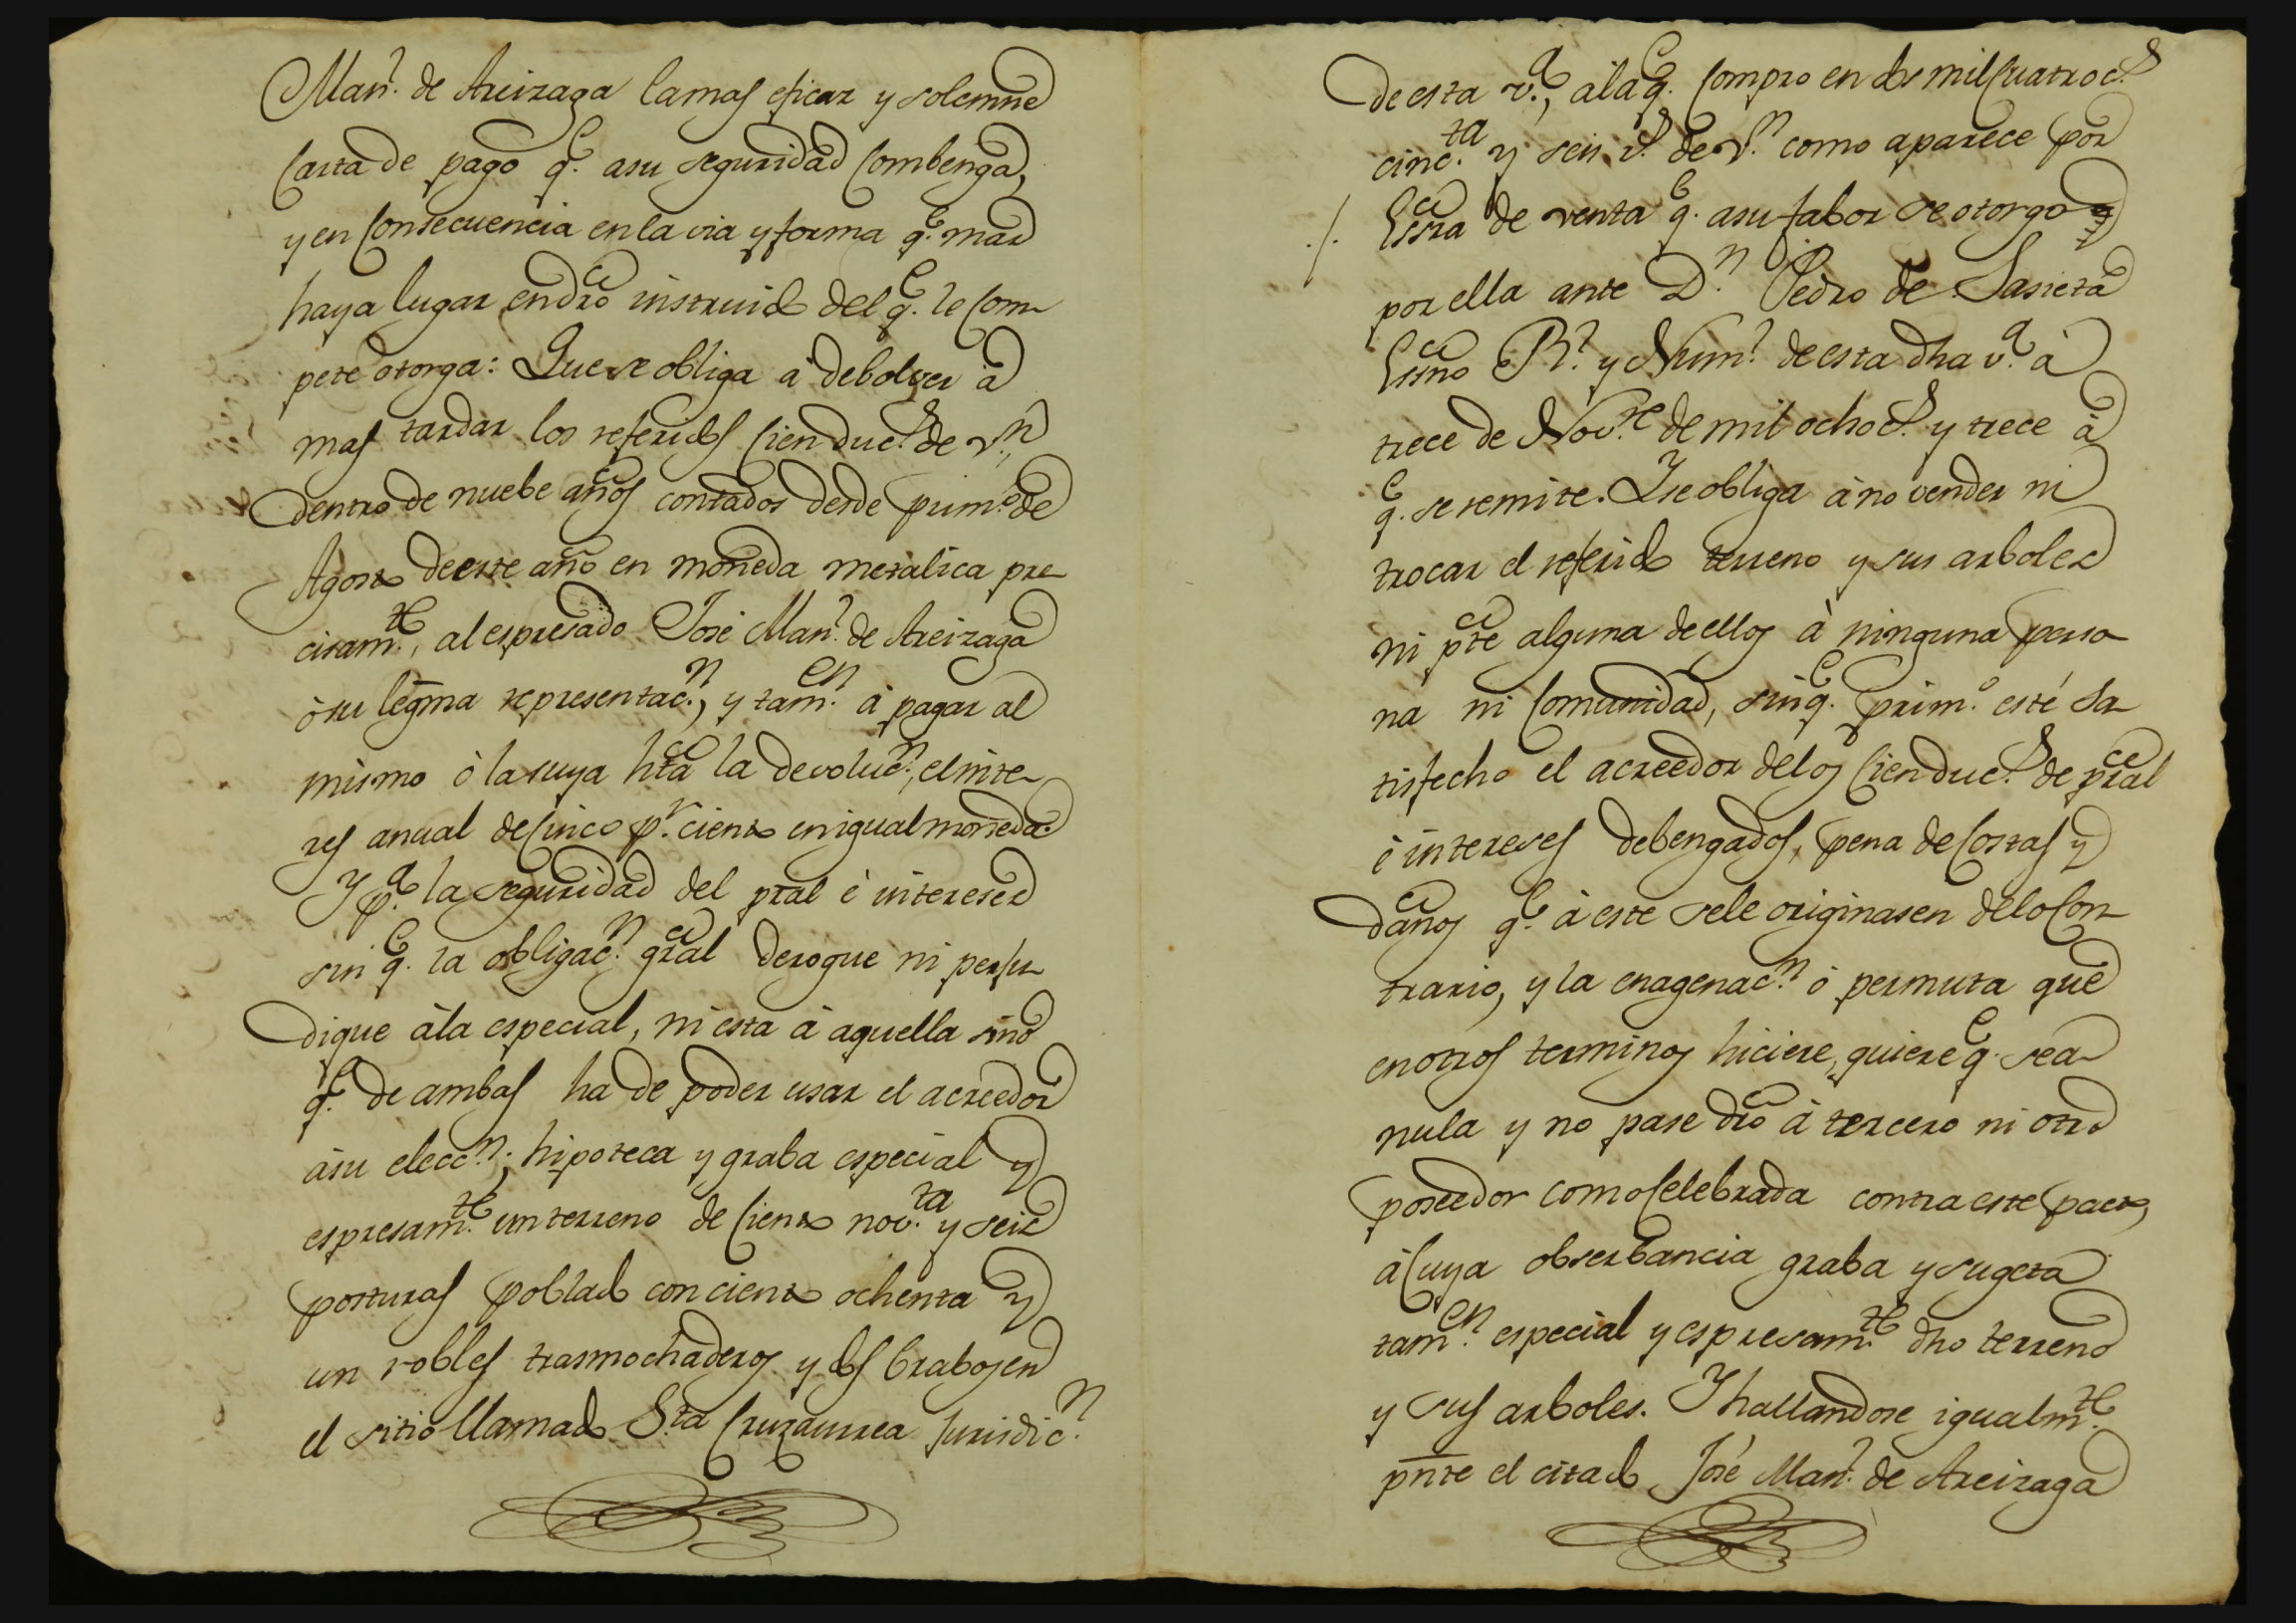 Man.l de Areizaga la mas eficaz y solemne
Carta de pago q.e a su seguridad Combenga,
y en Consecuencia en la via y forma q.e mas
haya lugar en dro instruido del q.e le Com-
pete otorga: Que se obliga á debolver á
mas tardar los referidos Cien duc.s de v.n,
dentro de nuebe años contados desde prim.o de
Agosto de este año en moneda metalica pre-
cisam.te, al espresado José Man.l de Areizaga
ò su legma representac.n, y tam.en á pagar al
mismo ò la suya hta la devoluc.n, el inte-
res anual de Cinco p.r ciento en igual moneda.
Y p.a la seguridad del pral é intereses
sin q.e la obligac.n gral derogue ni perju-
dique à la especial, ni esta á aquella sino
q.e de ambas ha de poder usar el acreedor
à su elecc.n; hipoteca y graba especial y
espresam.te un terreno de Ciento nov.ta y seis
posturas poblado con ciento ochenta y
un robles trasmochaderos y dos brabos en
el sitio llamado S.ta Cruzaurrea Jurisdic.n
de esta v.a, à la q.e Compro en dos mil Cuatroc.s
cinc.ta y seis r.s de v.n como aparece por
./. Essra de venta q.e a su fabor se otorgo
por ella ante D.n Pedro de Sasieta
Essno R.l y Num.l de esta dha v.a à
trece de Nov.re de mil ochoc.s y trece à
q.e se remite. Y se obliga à no vender ni
trocar el referido terreno y sus arboles
ni pte alguna de ellos à ninguna perso-
na ni Comunidad, sin q.e prim.o esté Sa-
tisfecho el acreedor de los Cien duc.s de pral
è intereses debengados, pena de Costas y
daños q.e à este se le originasen de lo Con-
trario, y la enagenac.n ó permuta que
en otros terminos hiciere, quiere q.e sea
nula y no pase dro à tercero ni otro
poseedor como Celebrada contra este pacto,
à Cuya obserbancia graba y sugeta
tam.en especial y espresam.te dho terreno
y sus arboles. Y hallandose igualm.te
pnte el citado José Man.l de Areizaga